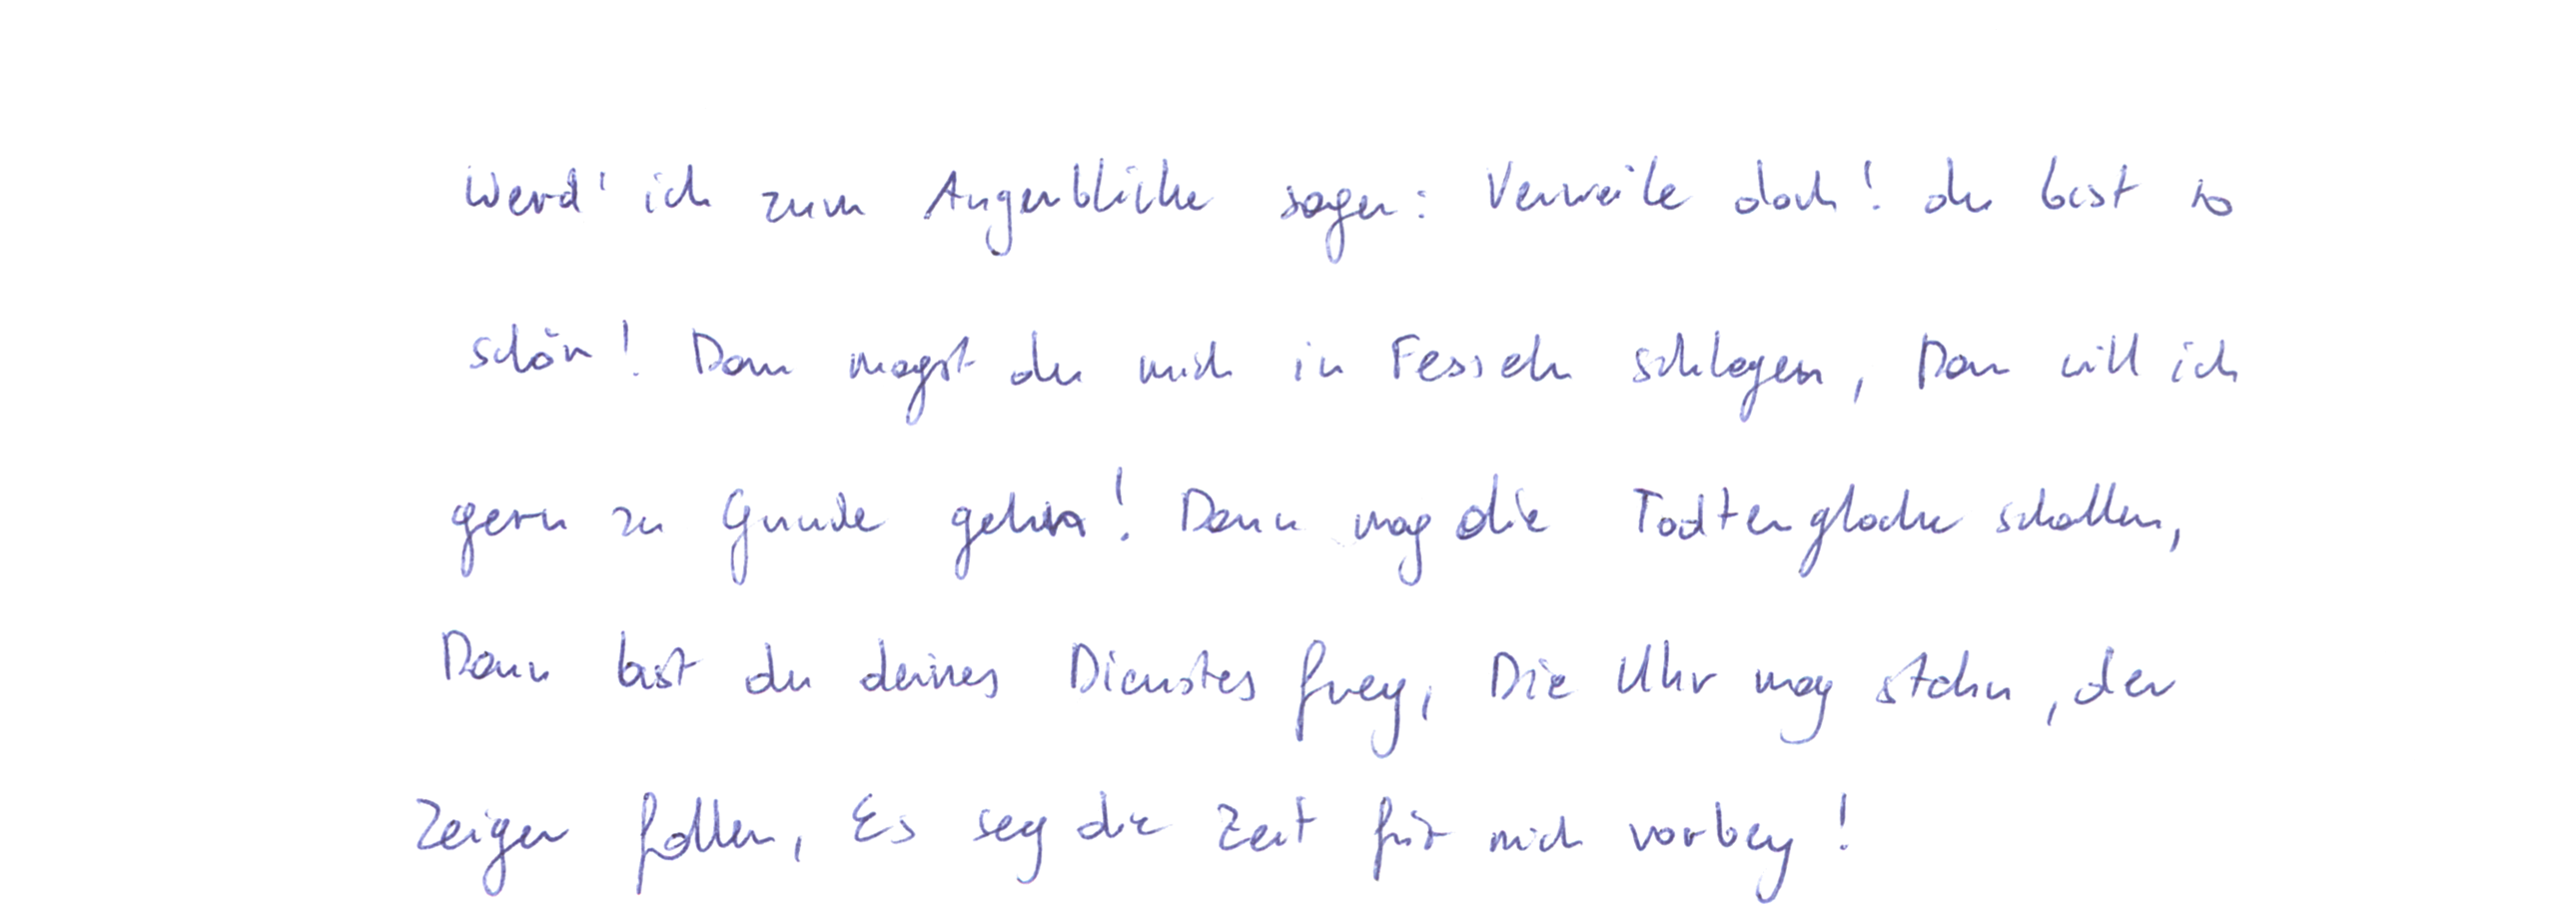 Werd' ich zum Augenblicke sagen: Verweile doch! du bist so
schön! Dann magst du mich in Fesseln schlagen, Dann will ich
gern zu Grunde gehn! Dann mag die Todtenglocke schallen,
Dann bist du deines Dienstes frey, Die Uhr mag stehn, der
Zeiger fallen, Es sey die Zeit für mich vorbey!